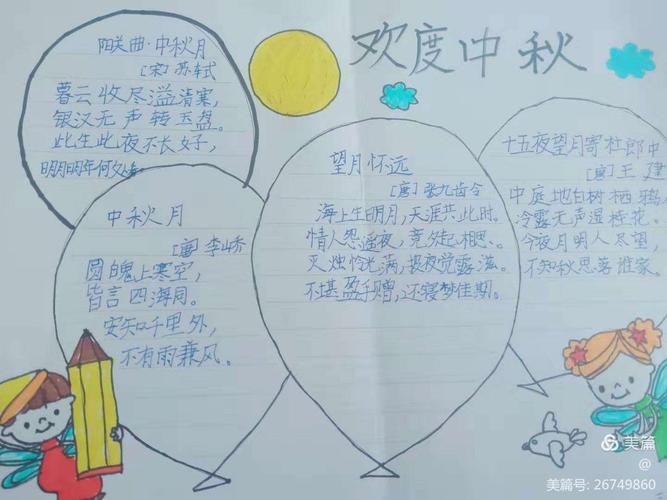 欢度中秋
阳关曲·中秋月
[宋]苏轼
暮云收尽溢清寒,
银汉无声转玉盘。
此生此夜不长好,
明月明年何处
中秋月
[唐]李峤
圆魄上寒空,
皆言四海同。
安知千里外,
不有雨兼风。
望月怀远
[唐]张九龄
海上生明月,天涯共此时。
情人怨遥夜,竞夕起相思。
灭烛怜光满,披衣觉露滋。
不堪盈手赠,还寝梦佳期。
十五夜望月寄杜郎中
[唐]王建
中庭地白树栖鸦,
冷露无声湿桂花。
今夜月明人尽望,
不知秋思落谁家。
美篇
@
美篇号: 26749860